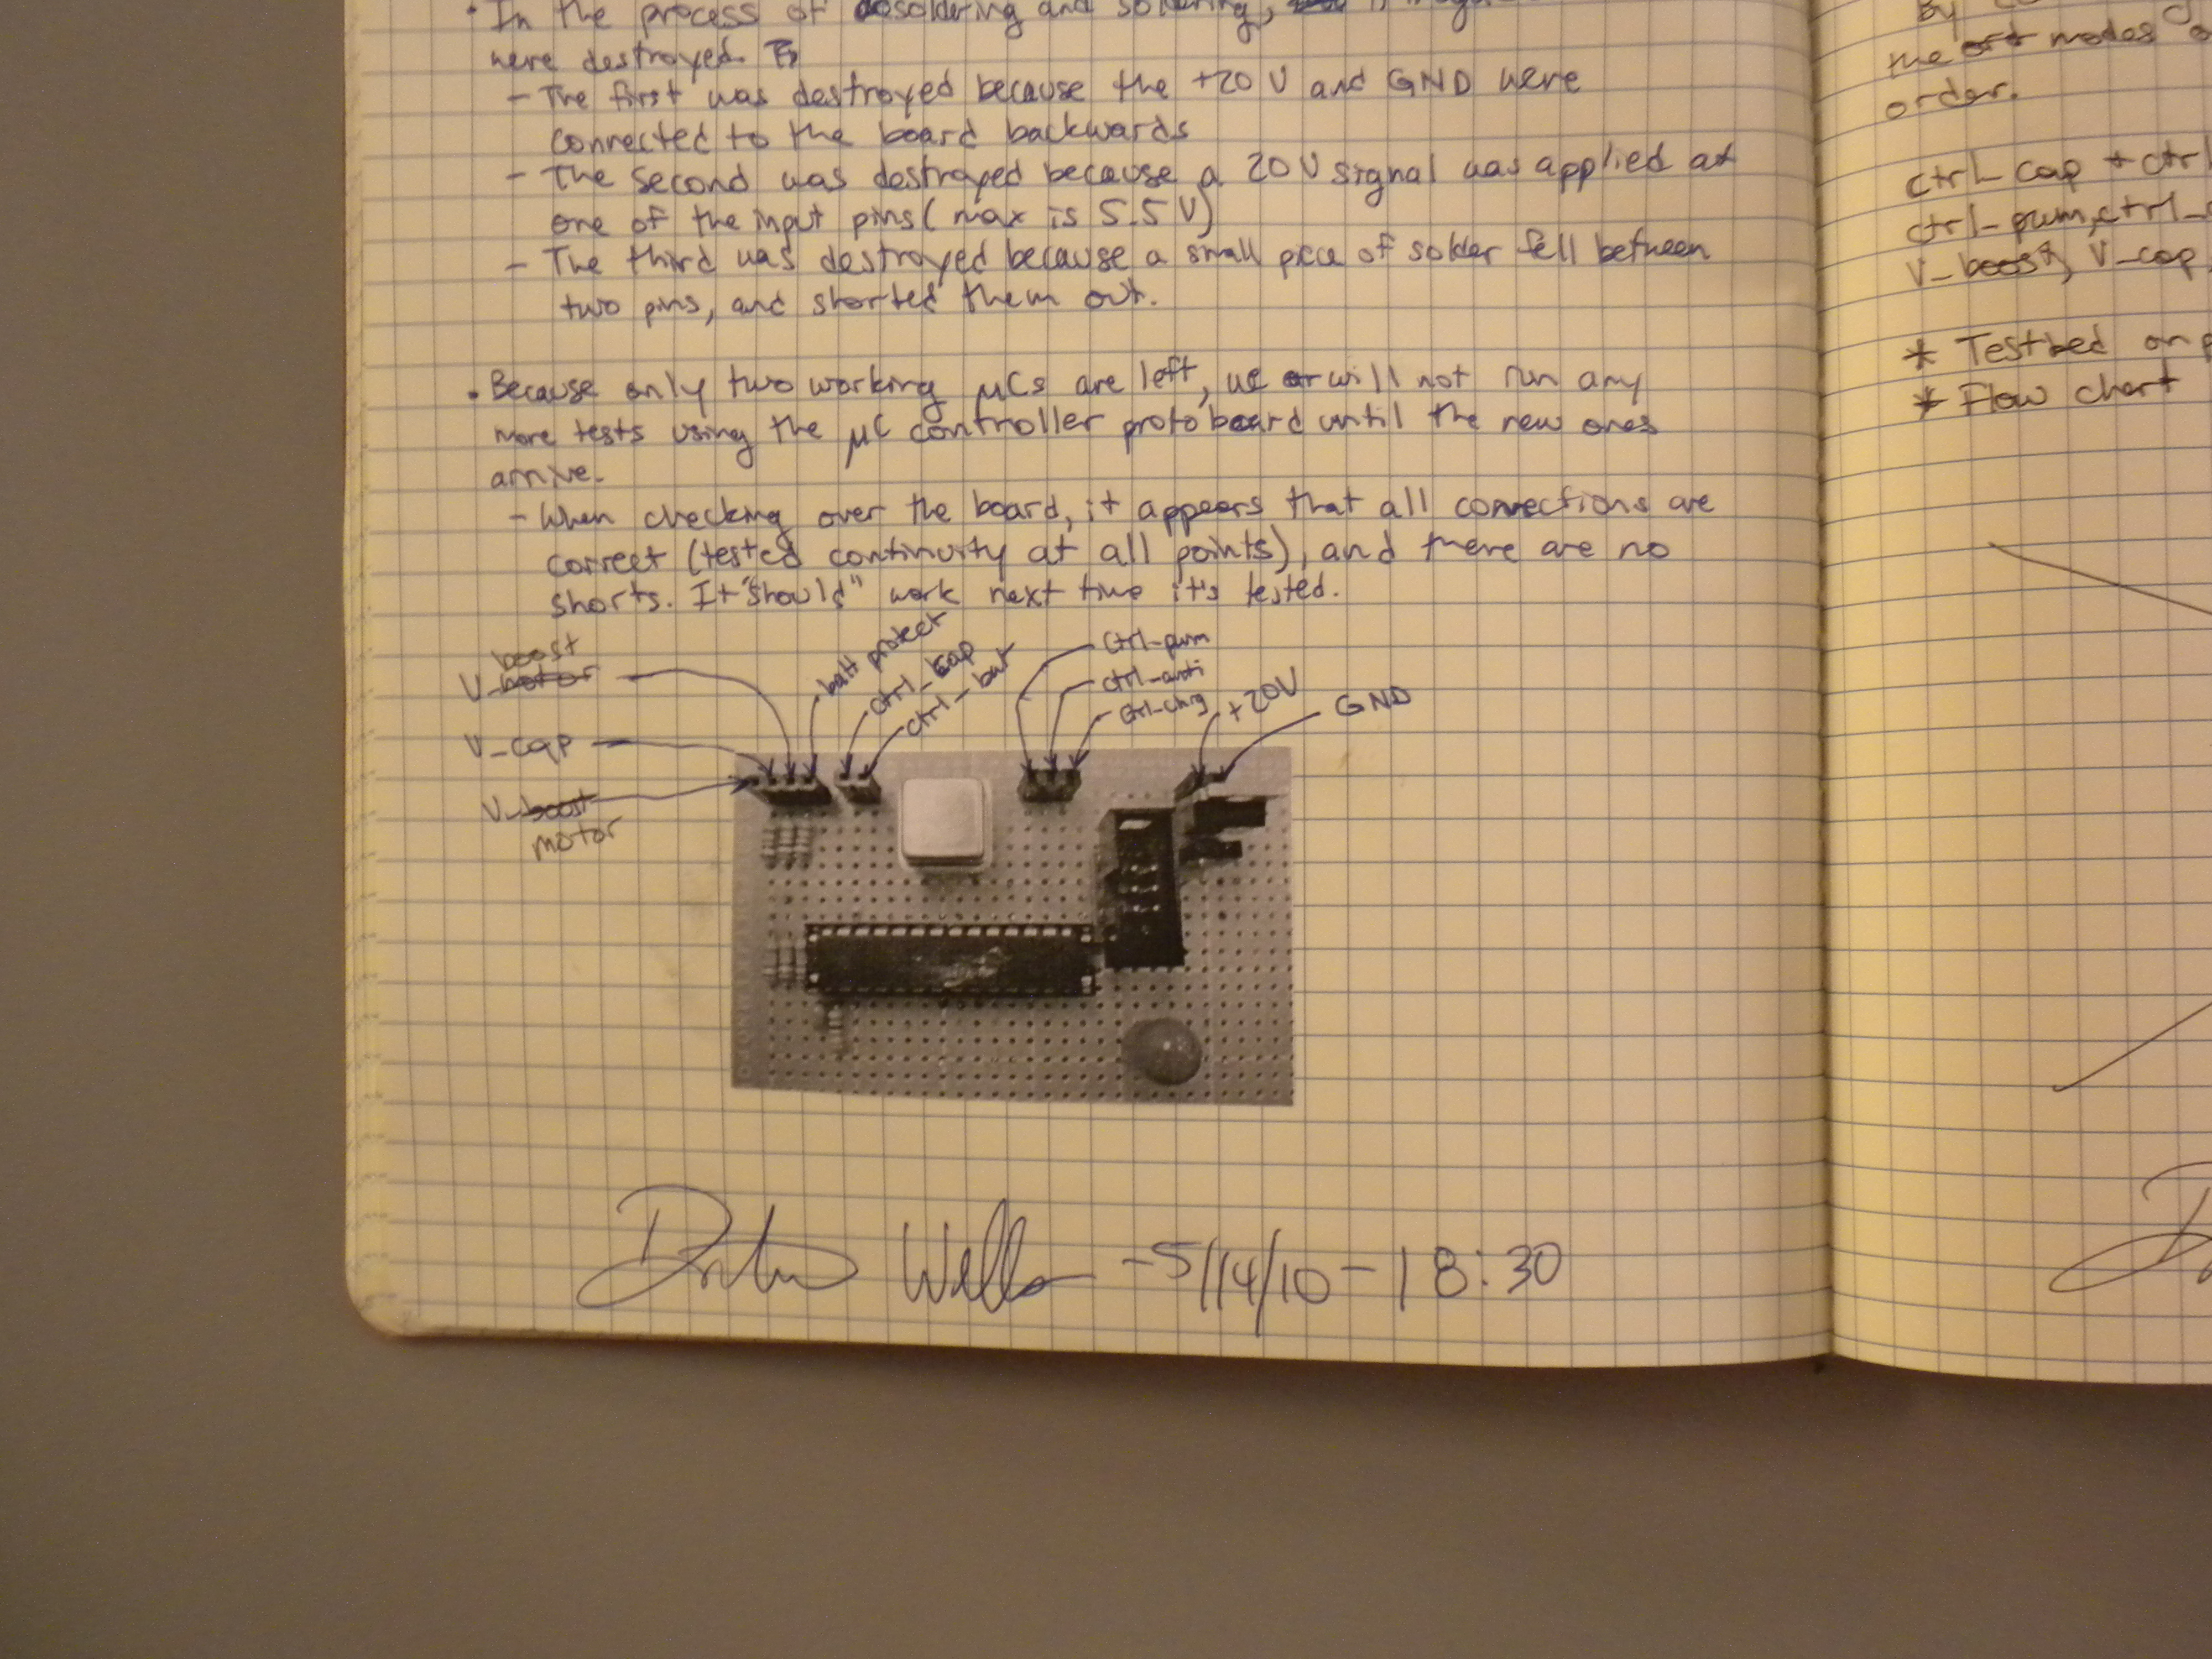 • In the process of desoldering and soldering,
were destroyed.
- The first was destroyed because the +20 V and GND were
connected to the board backwards
- The second was destroyed because a 20 V signal was applied at
one of the input pins (max is 5.5 V)
- The third was destroyed because a small piece of solder fell between
two pins, and shorted them out.
• Because only two working μCs are left, we will not run any
more tests using the μC controller protoboard until the new ones
arrive.
- When checking over the board, it appears that all connections are
correct (tested continuity at all points), and there are no
shorts. It "should" work next time it's tested.
boost
V_motor
V_cap
V_boost
motor
batt protect
ctrl_cap
ctrl_bat
ctrl_pwm
ctrl_anti
ctrl_chrg
+20V
GND
Wells
-5/14/10-18:30
By
the modes
order.
ctrl_cap + ctrl
ctrl_pwm, ctrl_
V_boost, V_cap
* Testbed on
* Flow chart